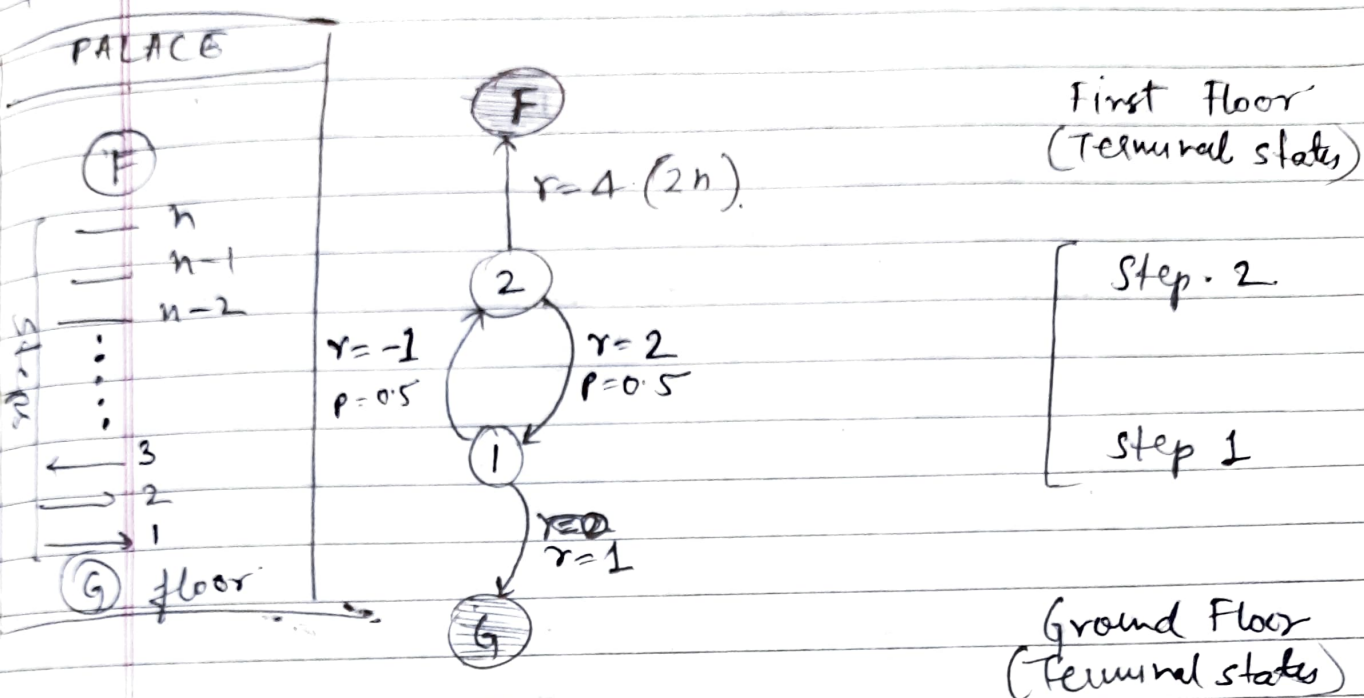 PALACE
F
n
n-1
n-2
Steps
3
2
1
G floor
F
r=4 (2n).
2
r=-1
p=0.5
r=2
p=0.5
1
r=1
G
First Floor
(Terminal states)
Step. 2
Step 1
Ground Floor
(Terminal states)